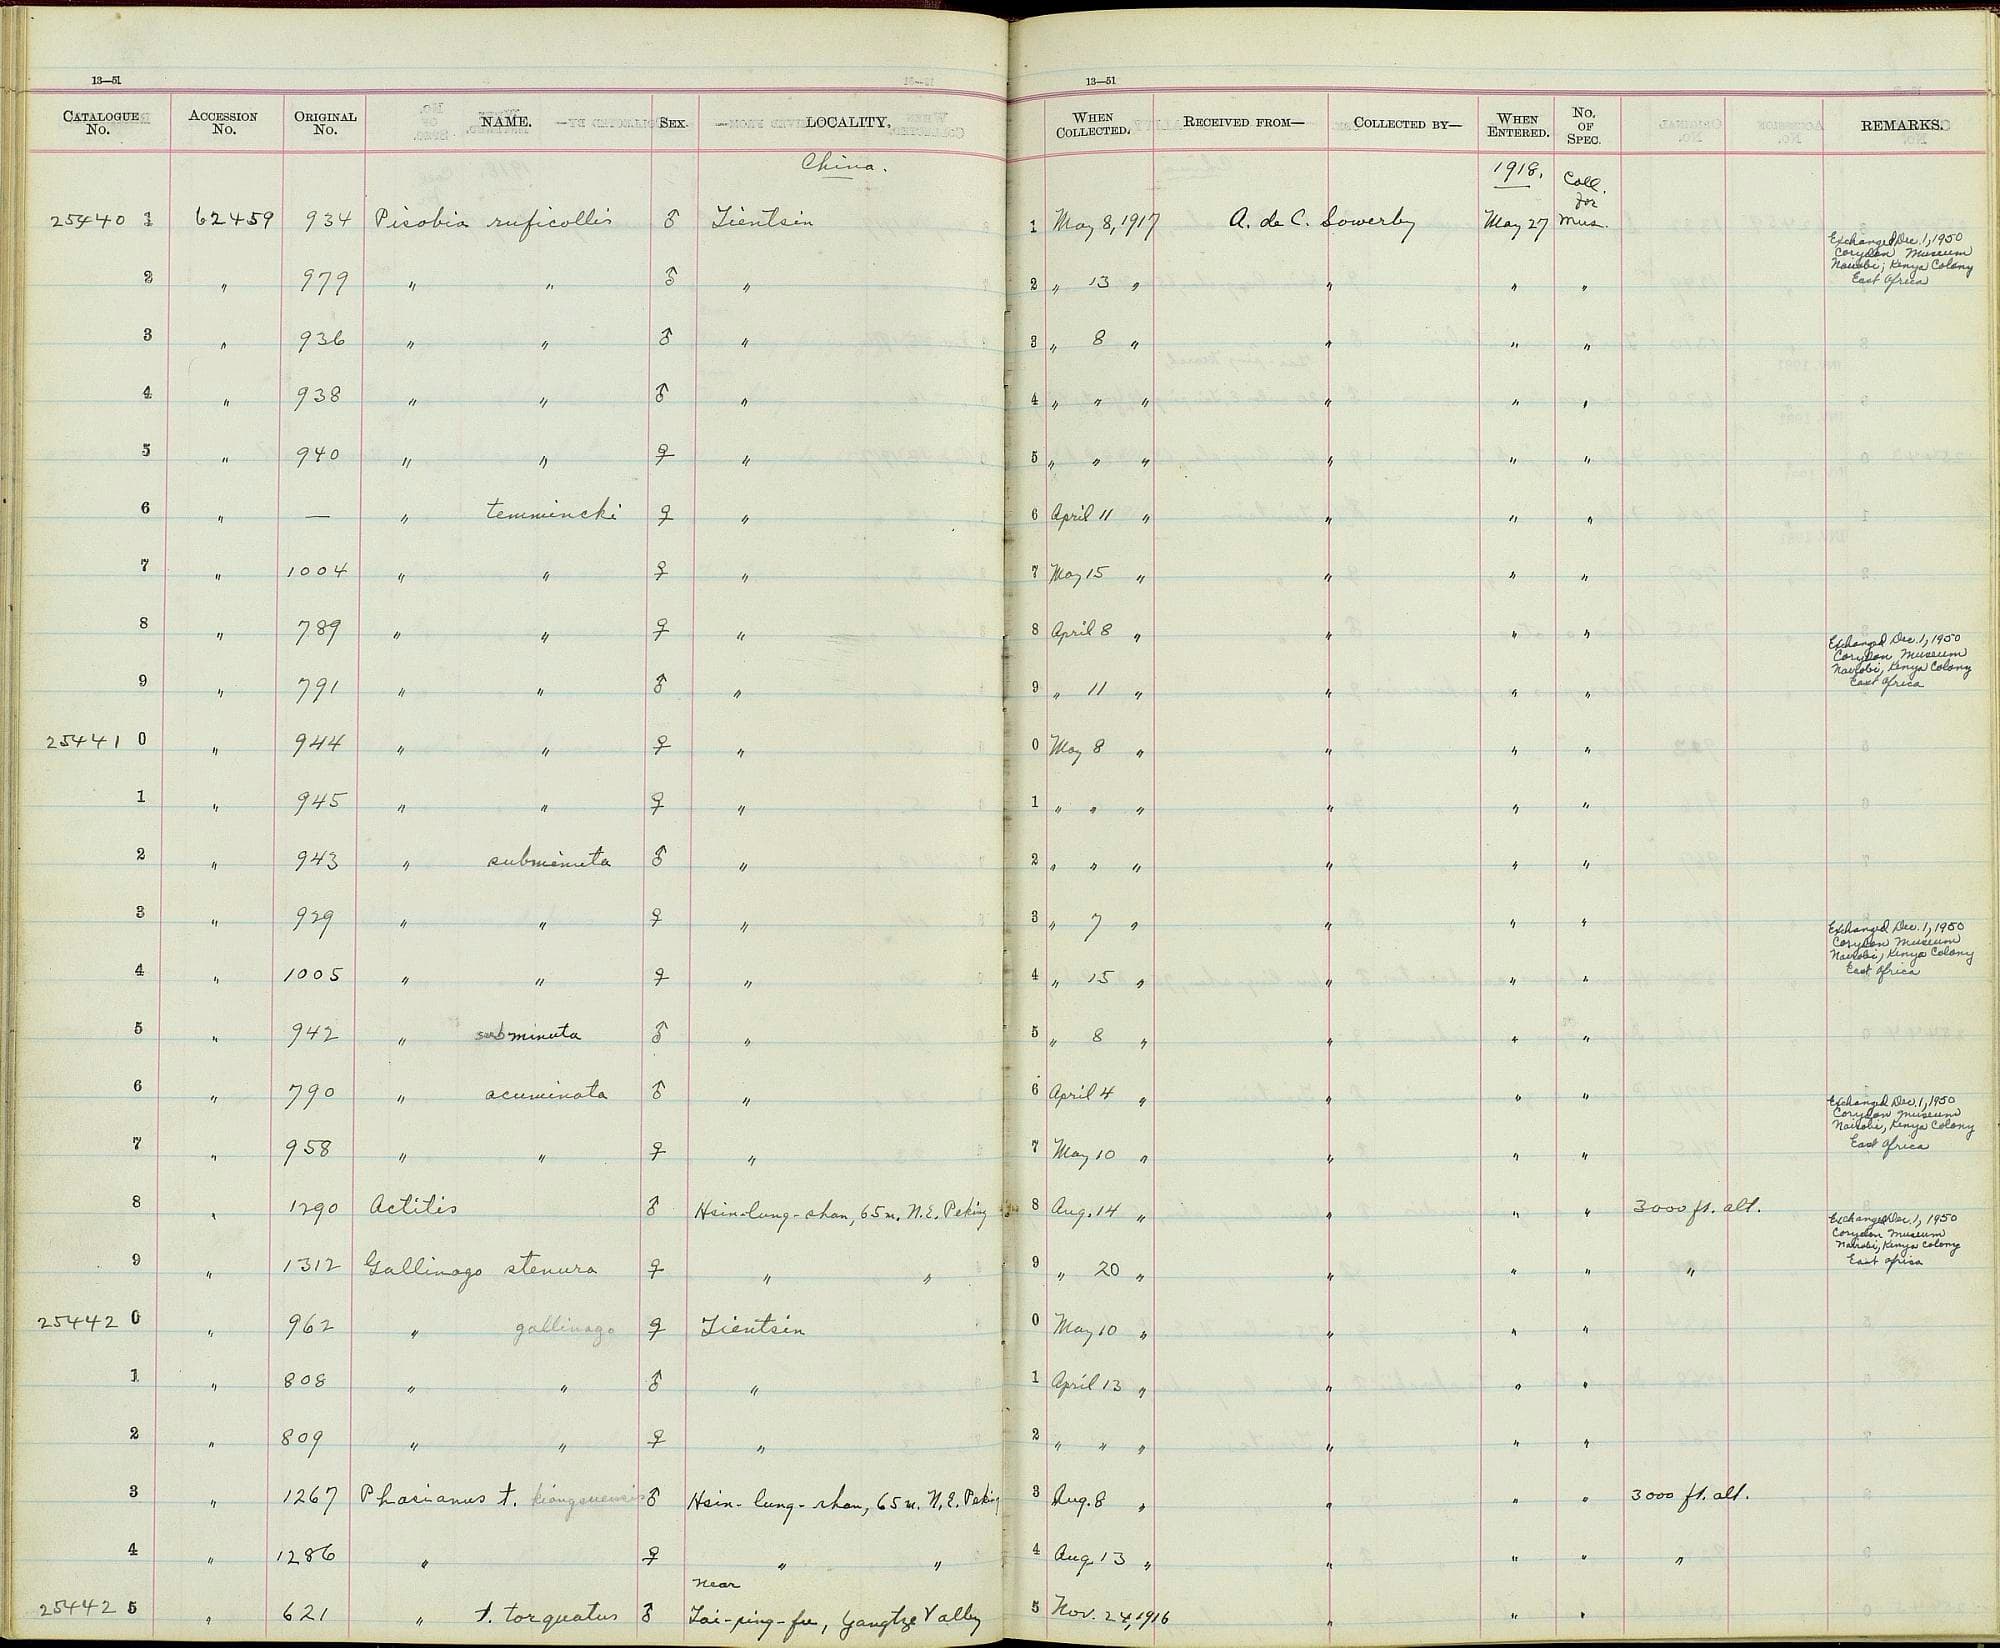 13—51
13—51
CATALOGUE No. ACCESSION No. ORIGINAL No. NAME. SEX. LOCALITY. WHEN COLLECTED. RECEIVED FROM— COLLECTED BY— WHEN ENTERED. No. OF SPEC. REMARKS.
China. 1918. Coll. for
25440 1 62459 934 Pisobia ruficollis ♂ Tientsin 1 May 8, 1917 A. de C. Sowerby May 27 Mus.
Exchanged Dec. 1, 1950
Coryndon Museum
Nairobi, Kenya Colony
East Africa
2 " 979 " " ♂ " 2 " 13 " " " "
3 " 936 " " ♂ " 3 " 8 " " " "
4 " 938 " " ♂ " 4 " " " " " "
5 " 940 " " ♀ " 5 " " " " " "
6 " — " temmincki ♀ " 6 April 11 " " " "
7 " 1004 " " ♀ " 7 May 15 " " " "
8 " 789 " " ♀ " 8 April 8 " " " "
Exchanged Dec. 1, 1950
Coryndon Museum
Nairobi, Kenya Colony
East Africa
9 " 791 " " ♂ " 9 " 11 " " " "
25441 0 " 944 " " ♀ " 0 May 8 " " " "
1 " 945 " " ♀ " 1 " " " " " "
2 " 943 " subminuta ♂ " 2 " " " " " "
3 " 929 " " ♀ " 3 " 7 " " " "
Exchanged Dec. 1, 1950
Coryndon Museum
Nairobi, Kenya Colony
East Africa
4 " 1005 " " ♀ " 4 " 15 " " " "
5 " 942 " subminuta ♂ " 5 " 8 " " " "
6 " 790 " acuminata ♂ " 6 April 4 " " " "
Exchanged Dec. 1, 1950
Coryndon Museum
Nairobi, Kenya Colony
East Africa
7 " 958 " " ♀ " 7 May 10 " " " "
8 " 1290 Actitis ♂ Hsin-lung-shan, 65 m. N.E. Peking 8 Aug. 14 " " " " 3000 ft. alt.
Exchanged Dec. 1, 1950
Coryndon Museum
Nairobi, Kenya Colony
East Africa
9 " 1312 Gallinago stenura ♀ " " 9 " 20 " " " " "
25442 0 " 962 " gallinago ♀ Tientsin 0 May 10 " " " "
1 " 808 " " ♂ " 1 April 13 " " " "
2 " 809 " " ♀ " 2 " " " " " "
3 " 1267 Phasianus t. kiangsuensis ♂ Hsin-lung-shan, 65 m. N.E. Peking 3 Aug. 8 " " " " 3000 ft. alt.
4 " 1286 " ♀ " " 4 Aug. 13 " " " " "
near
25442 5 " 621 " t. torquatus ♂ Tai-ping-fu, Yangtze Valley 5 Nov. 24, 1916 " " "